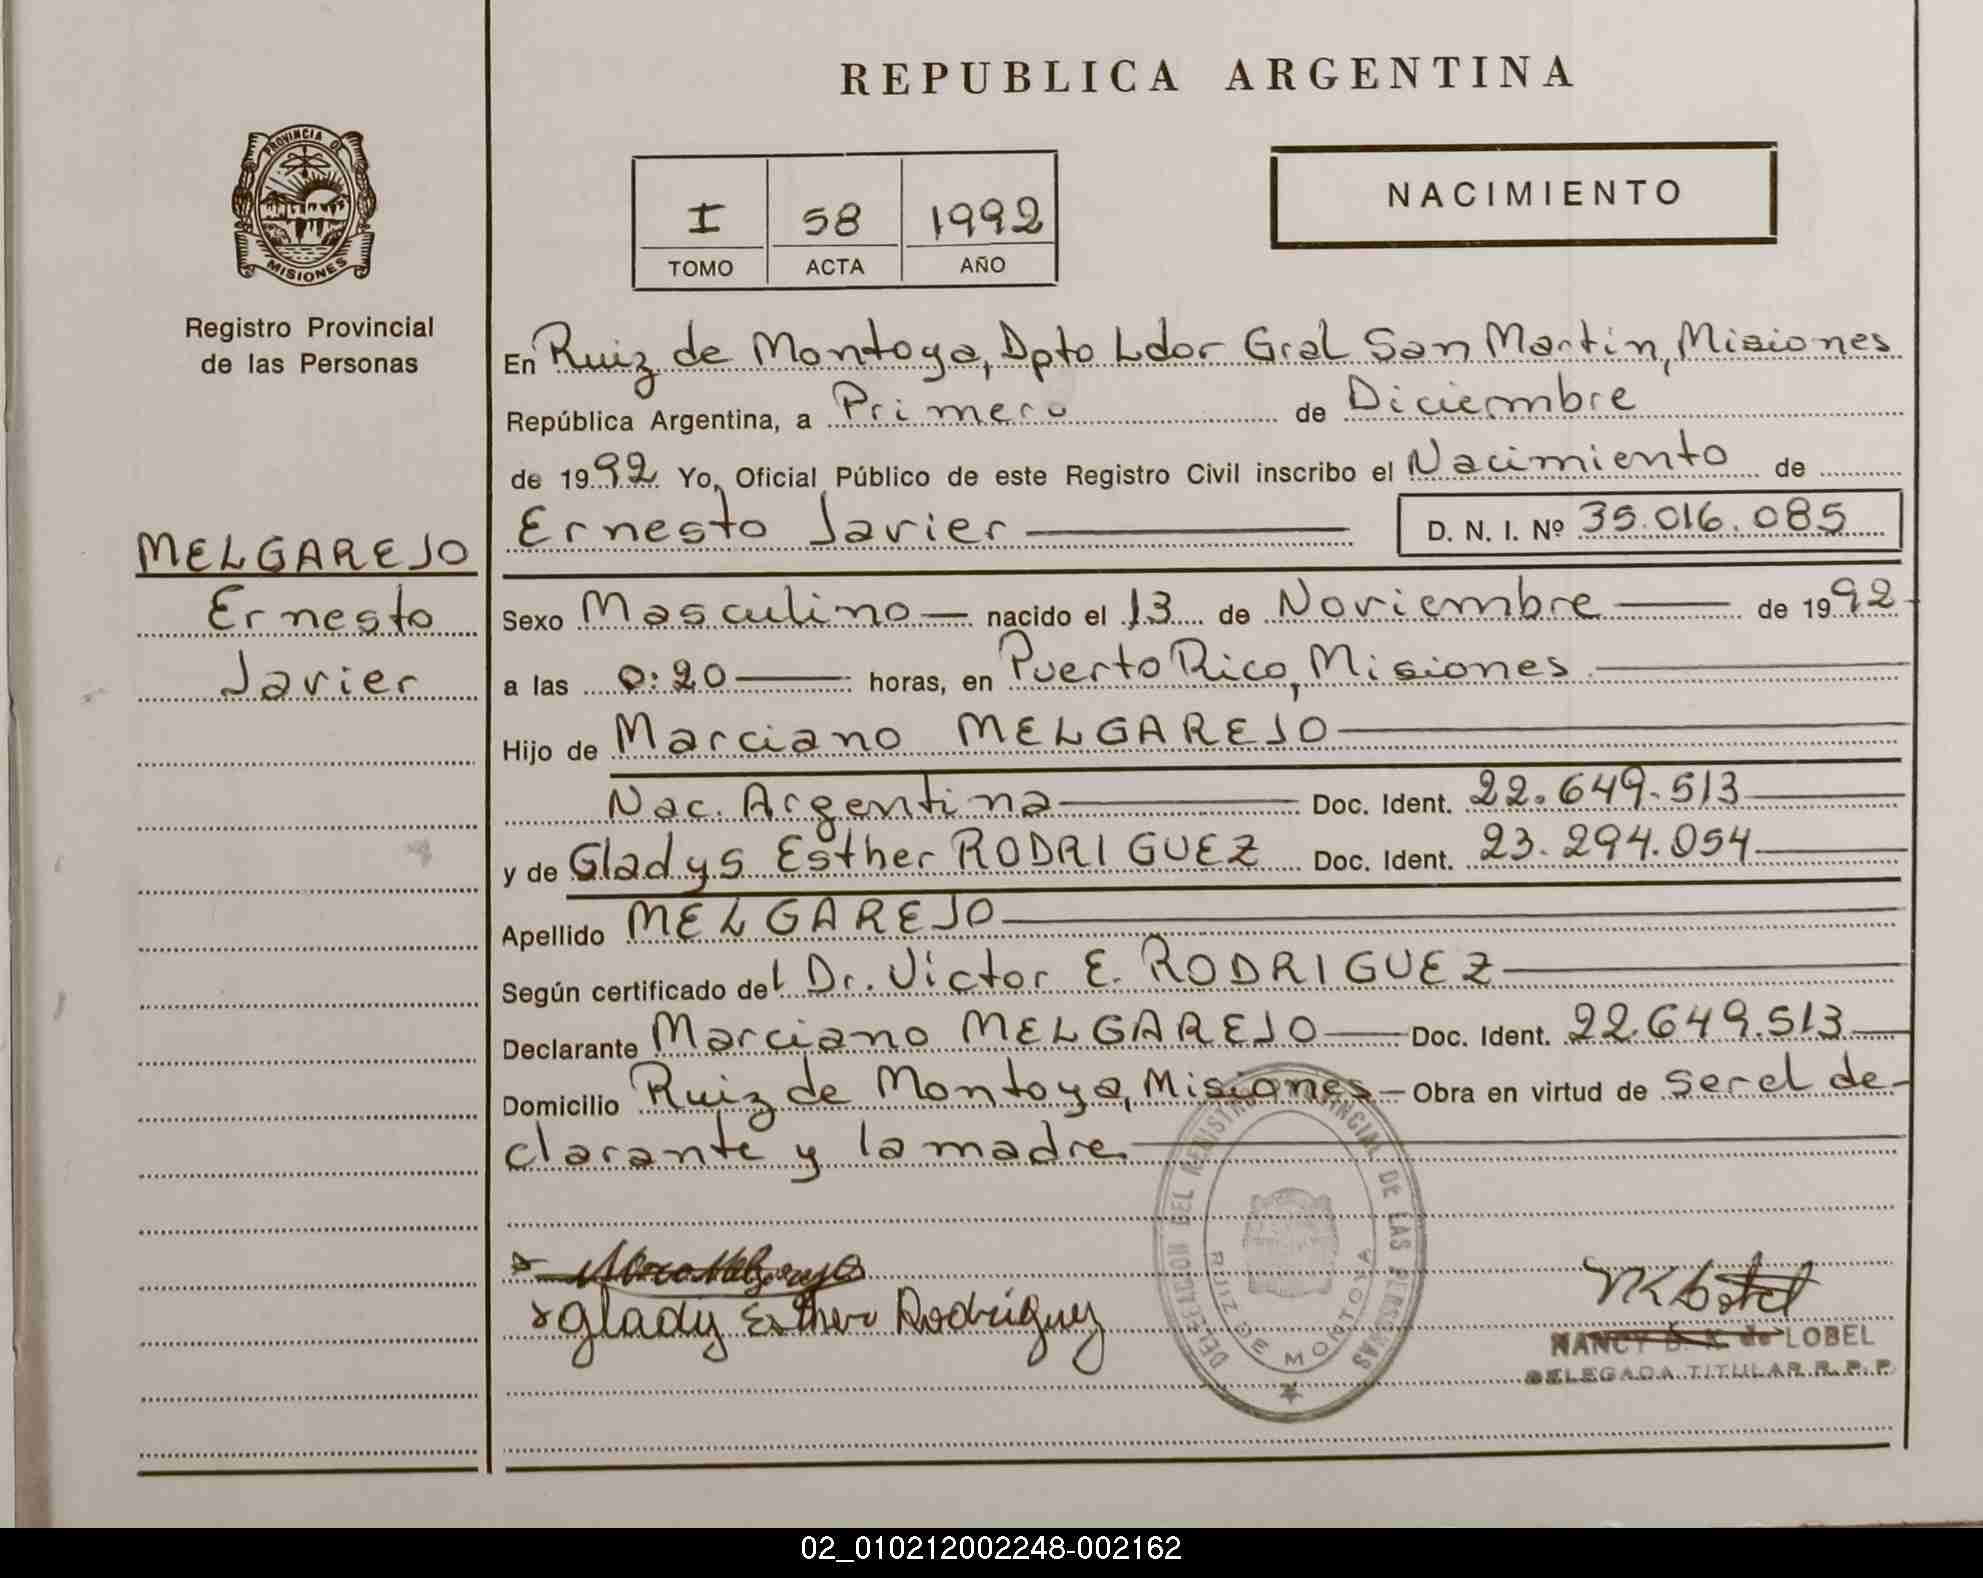 REPUBLICA ARGENTINA
PROVINCIA DE
MISIONES
Registro Provincial
de las Personas
I 58 1992
TOMO ACTA AÑO
NACIMIENTO
En Ruiz de Montoya, Dpto Ldor Gral San Martin, Misiones
República Argentina, a Primero de Diciembre
de 1992 Yo, Oficial Público de este Registro Civil inscribo el Nacimiento de
Ernesto Javier D. N. I. Nº 35.016.085
MELGAREJO
Ernesto
Javier
Sexo Masculino — nacido el 13 de Noviembre — de 1992
a las 0:20 — horas, en Puerto Rico, Misiones
Hijo de Marciano MELGAREJO
Nac. Argentina — Doc. Ident. 22.649.513
y de Gladys Esther RODRIGUEZ Doc. Ident. 23.294.054
Apellido MELGAREJO
Según certificado del Dr. Victor E. RODRIGUEZ
Declarante Marciano MELGAREJO — Doc. Ident. 22.649.513
Domicilio Ruiz de Montoya, Misiones — Obra en virtud de ser el de-
clarante y la madre
glady Esther Rodriguez
DELEGACION DEL REGISTRO PROVINCIAL DE LAS PERSONAS
RUIZ DE MONTOYA
NANCY de LOBEL
DELEGADA TITULAR R. P. P.
02_010212002248-002162